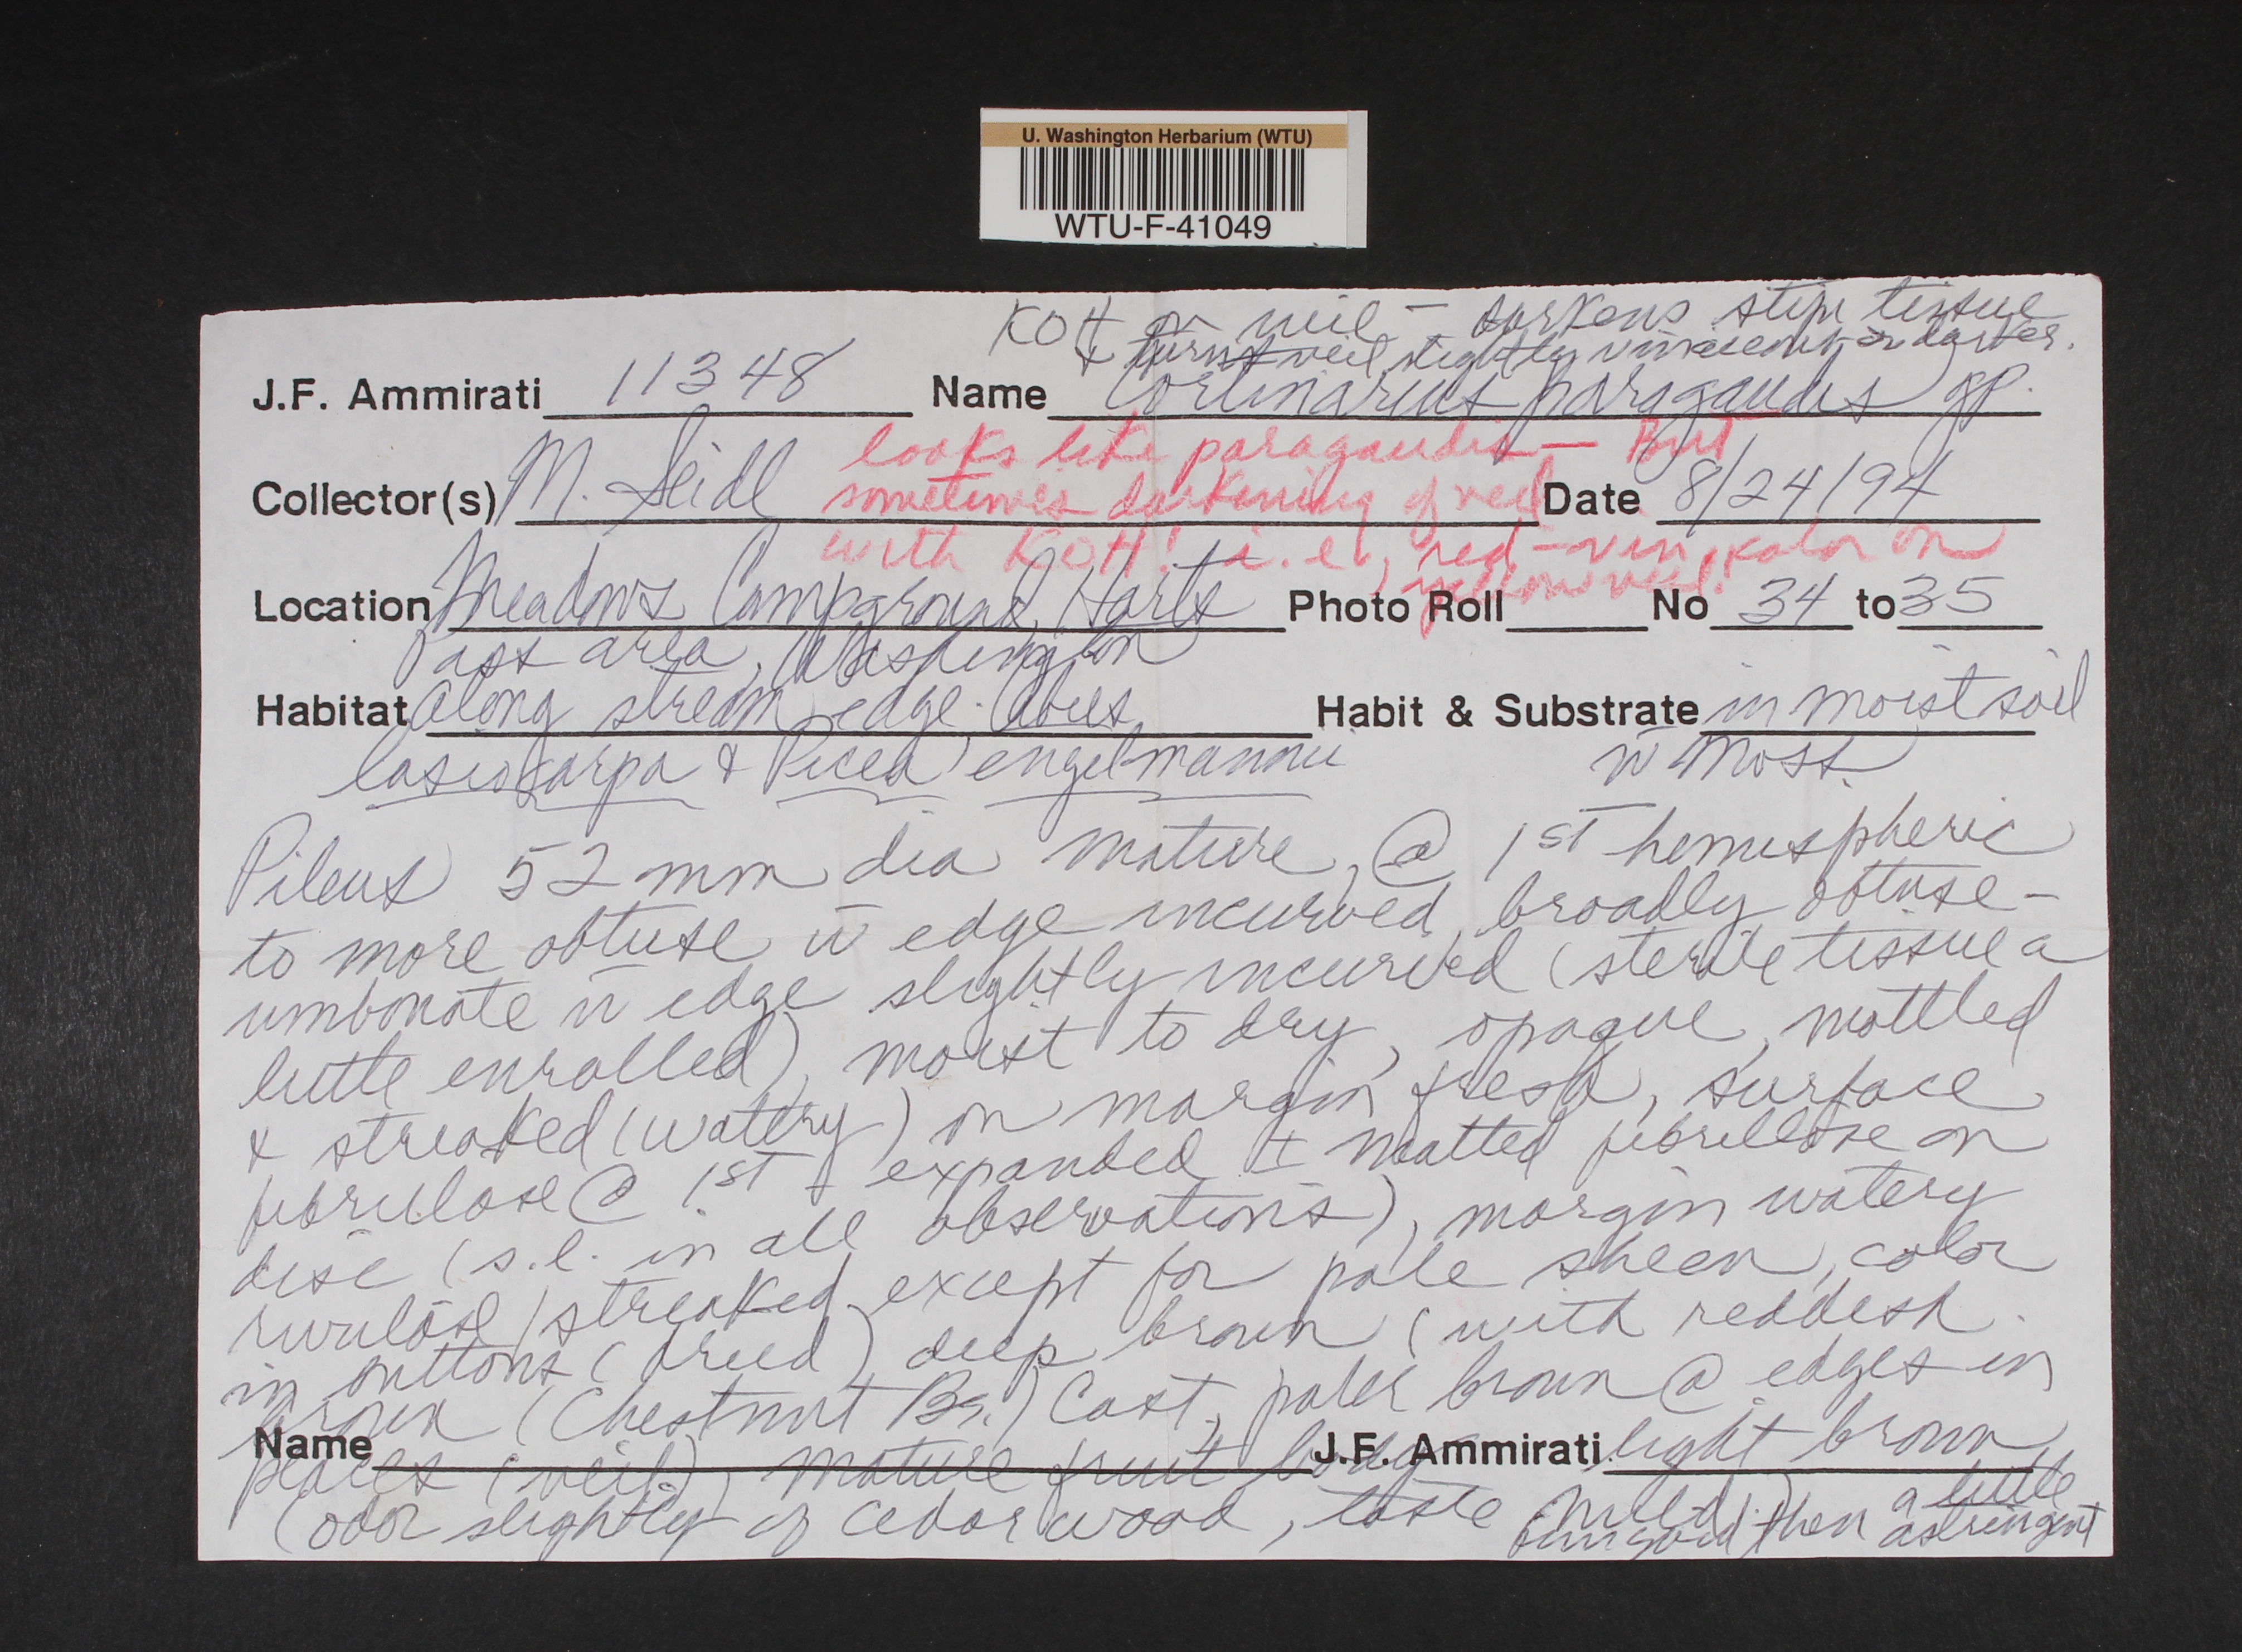 U. Washington Herbarium (WTU)
WTU-F-41049
KOH on veil – darkens stipe tissue
& turns veil slightly vinescent or darker.
J.F. Ammirati 11348 Name Cortinarius paragaudis gp.
looks like paragaudis — But
Collector(s) M. Seidl sometimes darkening of veil Date 8/24/94
with KOH! i.e., red-vin. color on
yellow veil!
Location Meadows Campground, Harts Photo Roll No 34 to 35
Pass area, Washington
Habitat along stream edge. Abies Habit & Substrate in moist soil
lasiocarpa & Picea engelmannii w̄ moss.
Pileus 52 mm dia mature, @ 1st hemispheric
to more obtuse w̄ edge incurved, broadly obtuse-
umbonate w̄ edge slightly incurved (sterile tissue a
little enrolled), moist to dry, opaque, mottled
& streaked (watery) on margin fresh, surface
fibrillose @ 1st, expanded ± matted fibrillose on
disc (s.l. in all observations), margin watery
rivulose/streaked except for pale sheen, color
in buttons (dried) deep brown (with reddish
brown (Chestnut Br.) Cast, paler brown @ edges in
Name places (veil), mature fruit body J.F. Ammirati light brown
(odor slightly of cedar wood, taste mild) then a little
astringent